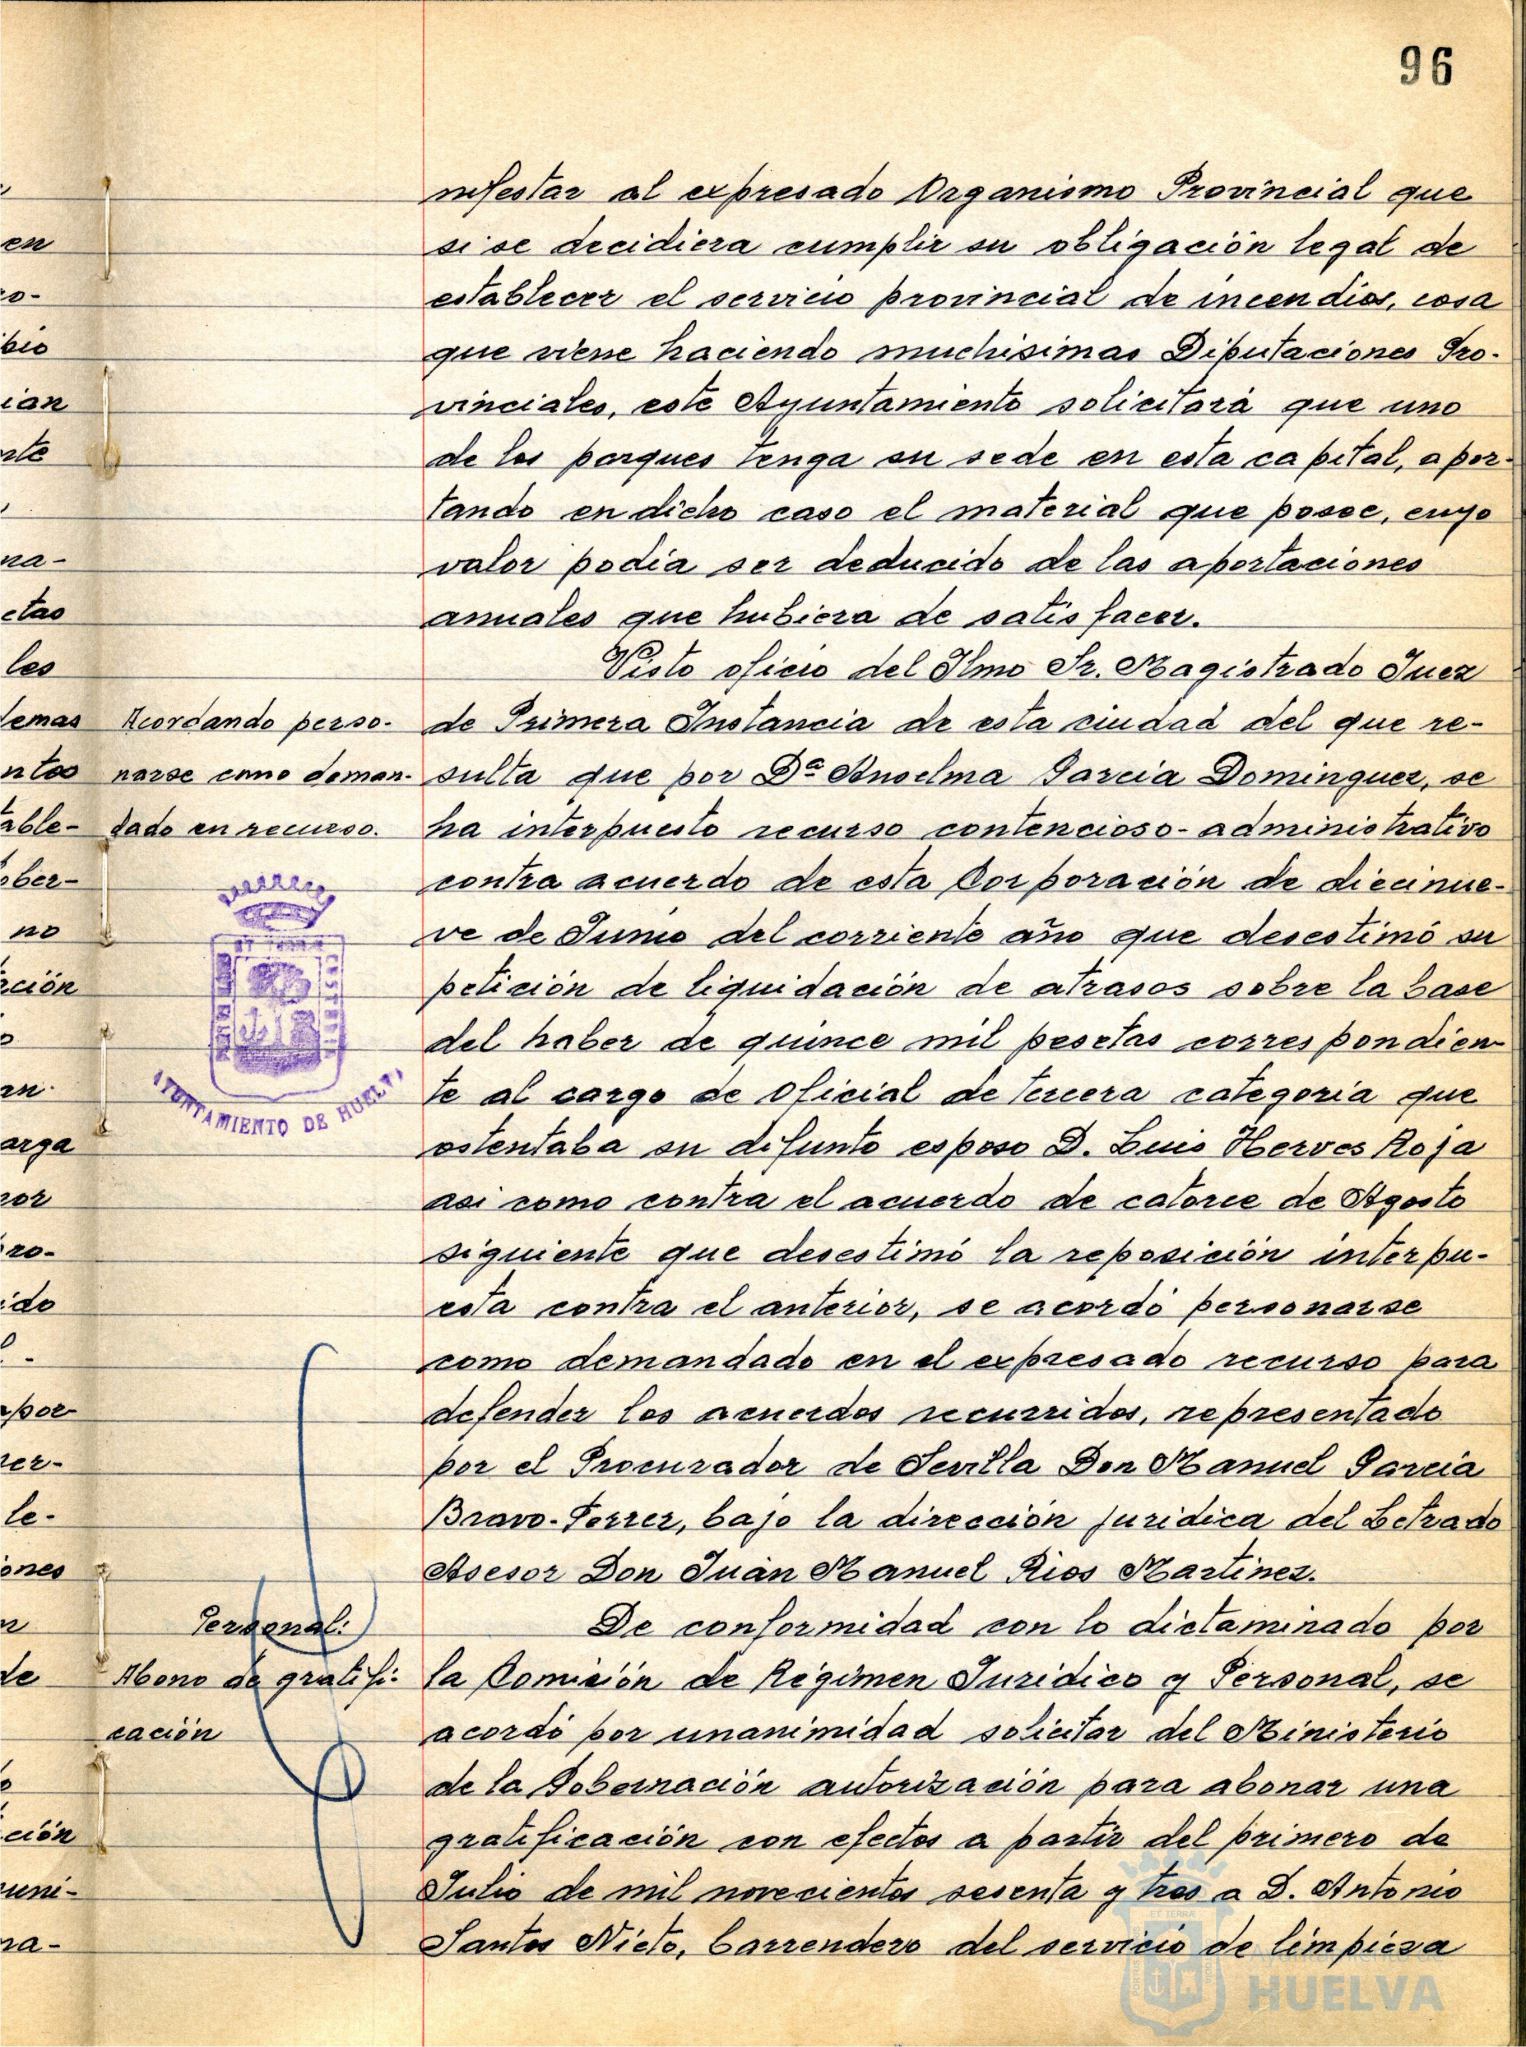 96
nifestar al expresado Organismo Provincial que
si se decidiera cumplir su obligación legal de
establecer el servicio provincial de incendios, cosa
que viene haciendo muchisimas Diputaciones Pro-
vinciales, este Ayuntamiento solicitará que uno
de los parques tenga su sede en esta capital, apor-
tando en dicho caso el material que posee, cuyo
valor podia ser deducido de las aportaciones
anuales que hubiera de satisfacer.
Visto oficio del Ilmo Sr. Magistrado Juez
de Primera Instancia de esta ciudad del que re-
sulta que por Dª Anselma Garcia Dominguez, se
ha interpuesto recurso contencioso-administrativo
contra acuerdo de esta Corporación de diecinue-
ve de Junio del corriente año que desestimó su
petición de liquidación de atrasos sobre la base
del haber de quince mil pesetas correspondien-
te al cargo de Oficial de tercera categoria que
ostentaba su difunto esposo D. Luis Herves Roja
asi como contra el acuerdo de catorce de Agosto
siguiente que desestimó la reposición interpu-
esta contra el anterior, se acordó personarse
como demandado en el expresado recurso para
defender los acuerdos recurridos, representado
por el Procurador de Sevilla Don Manuel Garcia
Bravo-Ferrer, bajo la dirección juridica del Letrado
Asesor Don Juán Manuel Rios Martinez.
De conformidad con lo dictaminado por
la Comisión de Régimen Juridico y Personal, se
acordó por unanimidad solicitar del Ministerio
de la Gobernación autorización para abonar una
gratificación con efectos a partir del primero de
Julio de mil novecientos sesenta y tres a D. Antonio
Santos Nieto, barrendero del servicio de limpieza
Acordando perso-
narse como deman-
dado en recurso.
AYUNTAMIENTO DE HUELVA
Personal:
Abono de gratifi-
cación
en
ro-
bio
ian
rte
na-
ctas
les
demas
ntos
table-
ober-
no
ación
o
an
arga
por
pro-
ido
por
ver-
le-
ones
n
de
ción
uni-
na-
Ayuntamiento de
HUELVA